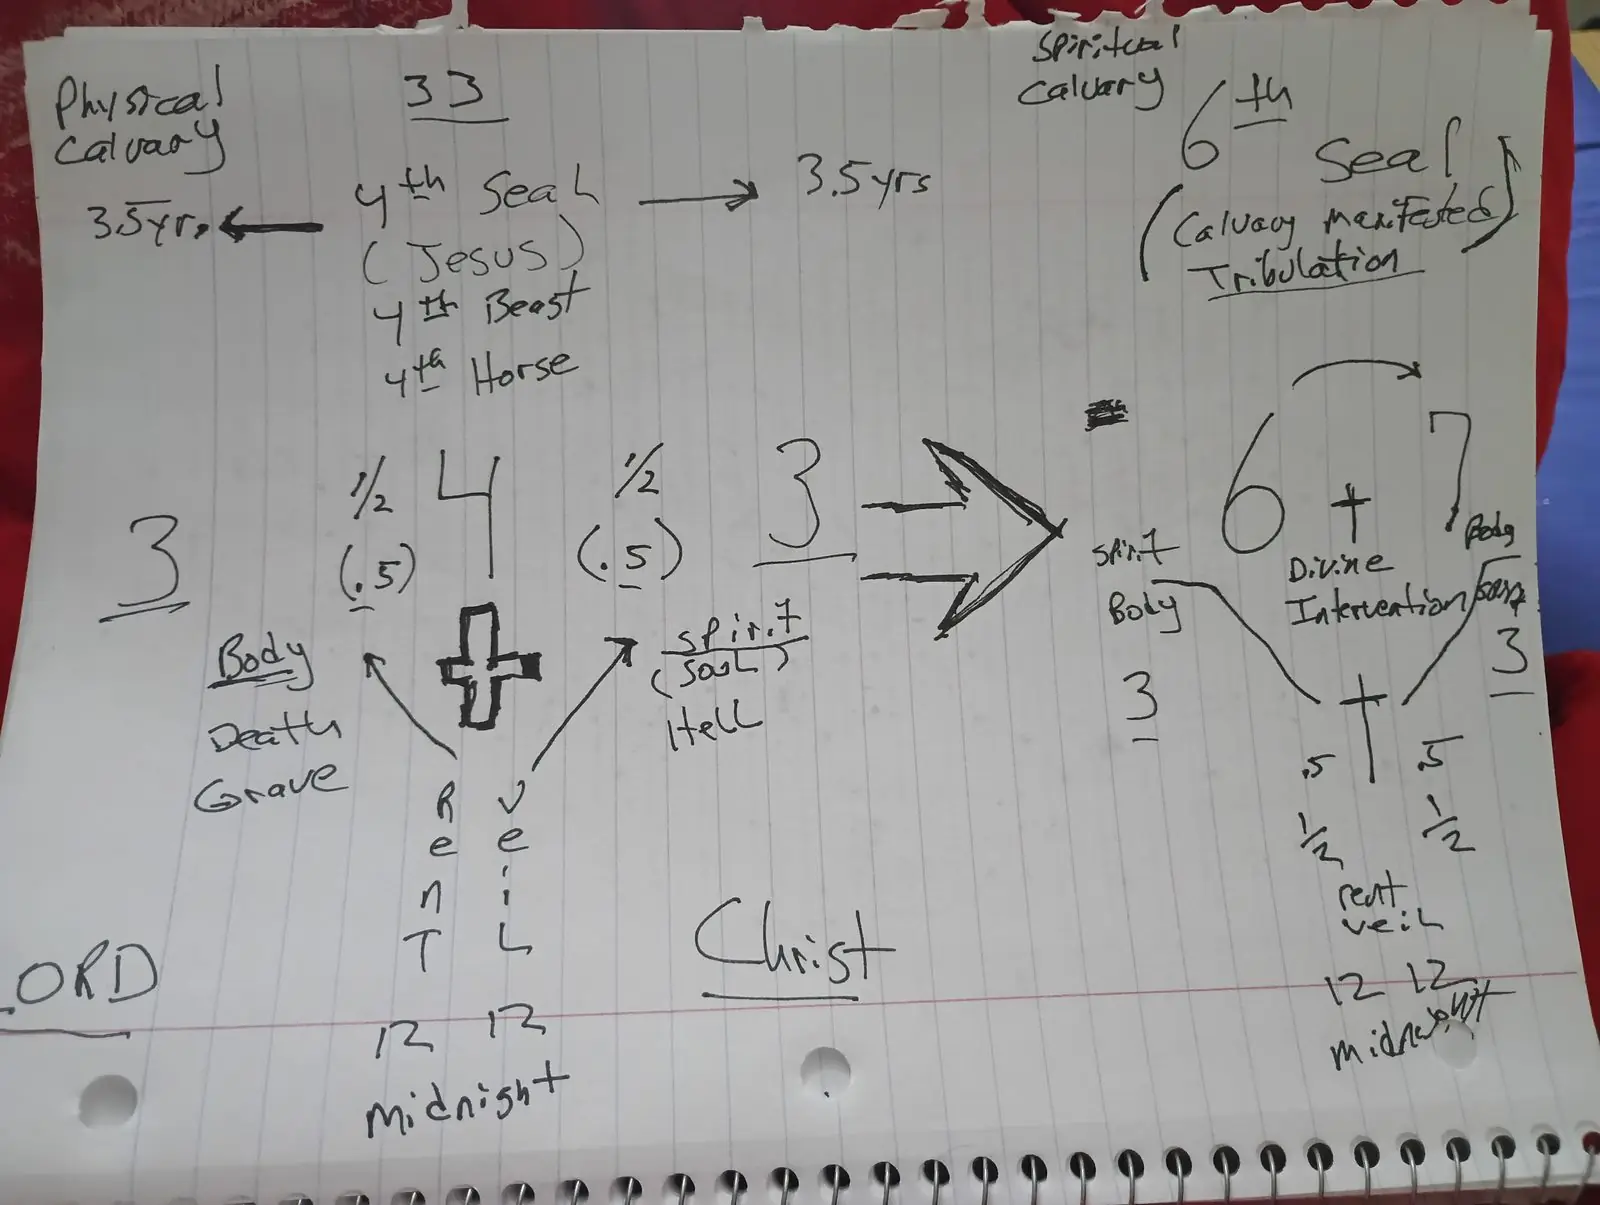 Physical
Calvary
33
Spiritual
Calvary
6th
Seal
(Calvary Manifested)
Tribulation
3.5yr.
4th Seal
(Jesus)
4th Beast
4th Horse
3.5yrs
3
1/2
(.5)
4
1/2
(.5)
3
6
7
Divine
Intervention
Spirit
Body
3
Body
3
Body
Death
Grave
Spirit
(Soul)
Hell
Rent
Veil
.5
.5
1/2
1/2
rent
veil
12 12
midnight
Christ
ORD
12 12
Midnight